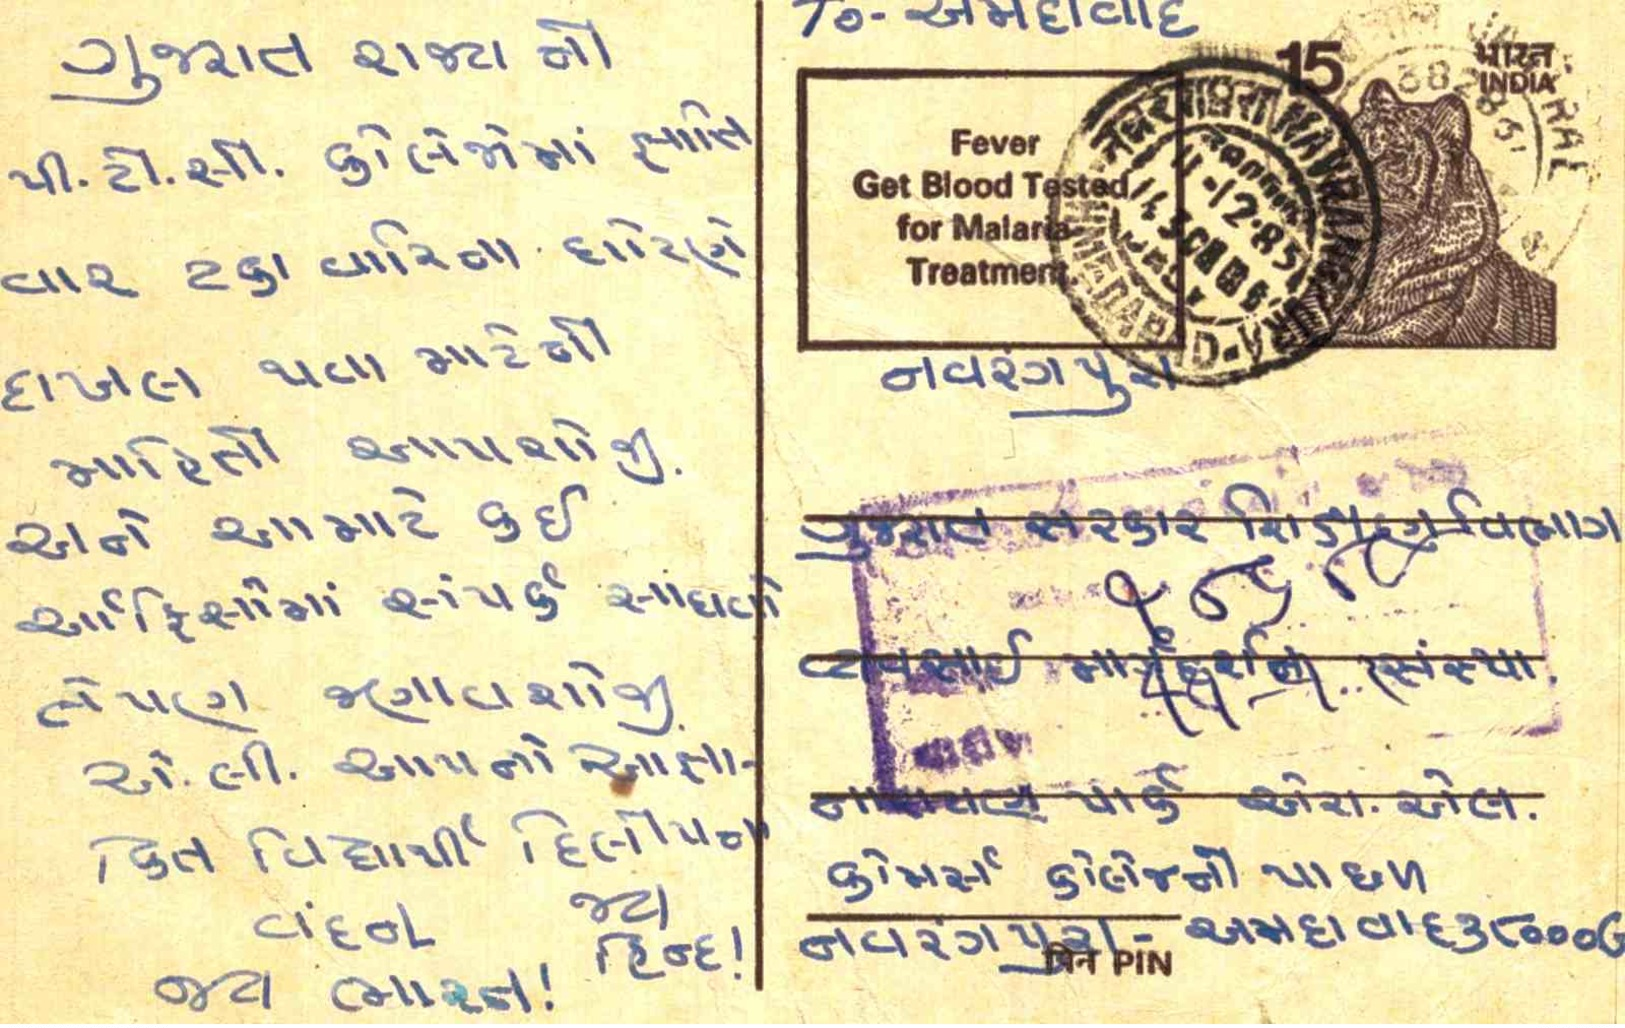 ગુજરાત રાજ્ય ની
પી.ટી.સી. કોલેજોમાં જ્ઞાતિ
વાર ટકા વારિના ધોરણે
દાખલ થવા માટેની
માહિતી આપશોજી.
અને આ માટે કઈ
ઓફિસોમાં સંપર્ક સાધવો
તેપણ જણાવશોજી.
એ.લી. આપનો આજ્ઞા-
કિત વિદ્યાર્થી દિલીપના
વંદન જય
હિન્દ!
જય ભારત!
To- અમદાવાદ
Fever
Get Blood Tested
for Malaria
Treatment.
15
भारत
INDIA
NAVRANGPURA
AHMEDABAD
11-12-85
નવરંગપુરા
ગુજરાત સરકાર શિક્ષણ વિભાગ
વ્યવસાઈ માર્ગદર્શન સંસ્થા.
નારાયણ પાર્ક એચ. એલ.
કોમર્સ કોલેજની પાછળ
નવરંગપુરા - અમદાવાદ ૩૮૦૦૦૯
पिन PIN